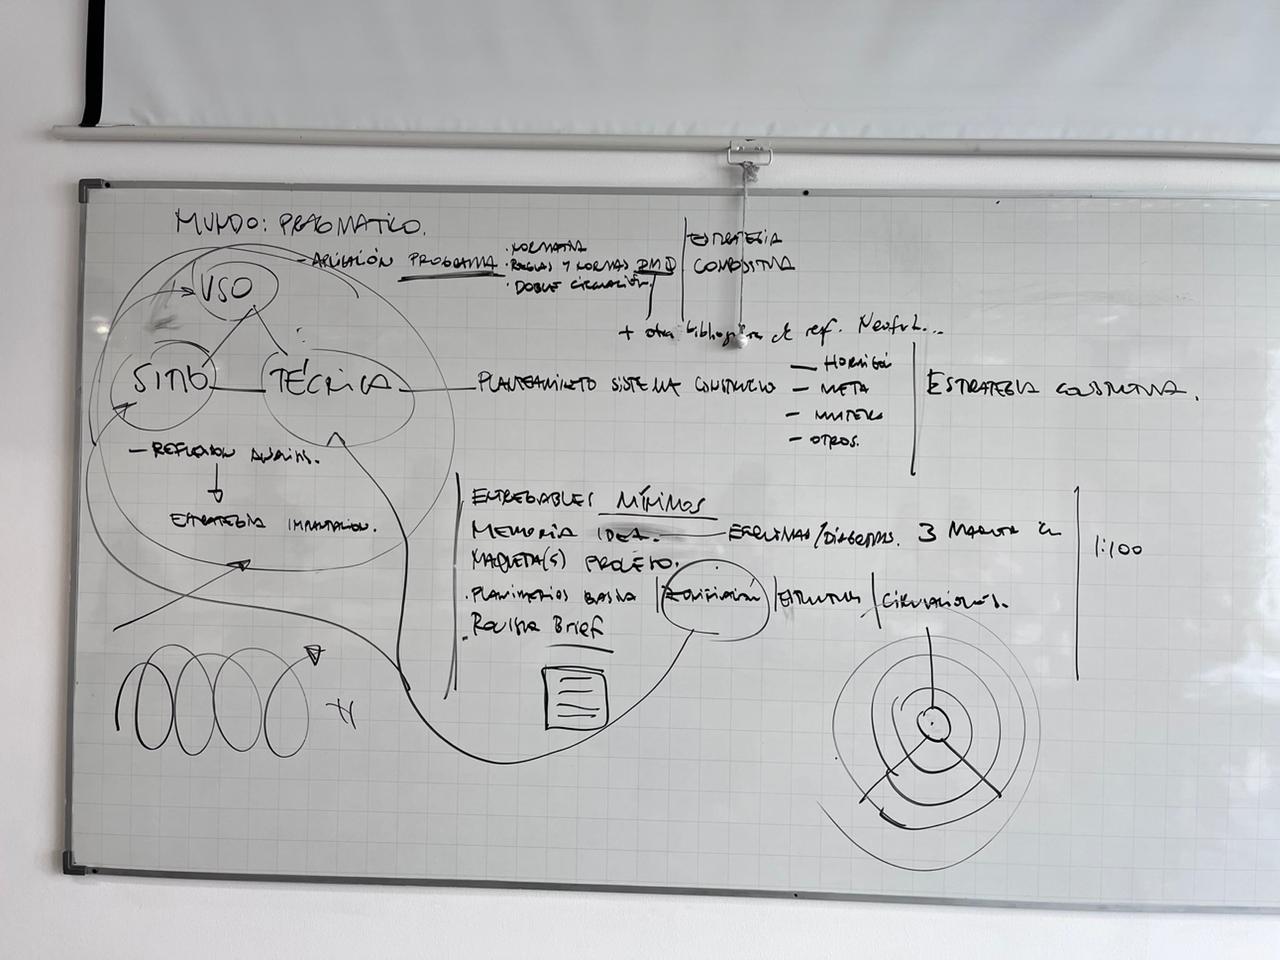 MUNDO: PRAGMATICO.
- APLICACIÓN PROGRAMA
· NORMATIVA
· REGLAS Y NORMAS DMQ
· DOBLE CIRCULACIÓN.
ESTRATEGIA
COMPOSITIVA
+ otra bibliografía de ref. Neufert...
USO
SITIO
TÉCNICA
PLANTEAMIENTO SISTEMA CONSTRUCTIVO
- HORMIGÓN
- METAL
- MADERA
- OTROS.
ESTRATEGIA CONSTRUCTIVA.
- REFLEXION ANALISIS.
ESTRATEGIA IMPLANTACION.
ENTREGABLES MÍNIMOS
MEMORIA IDEA. ESQUEMAS/DIAGRAMAS. 3
MAQUETA(S) PROYECTO.
· PLANIMETRIAS BASICA | ZONIFICACIÓN | ESTRUCTURA | CIRCULACIONES.
· Revista Brief
1:100